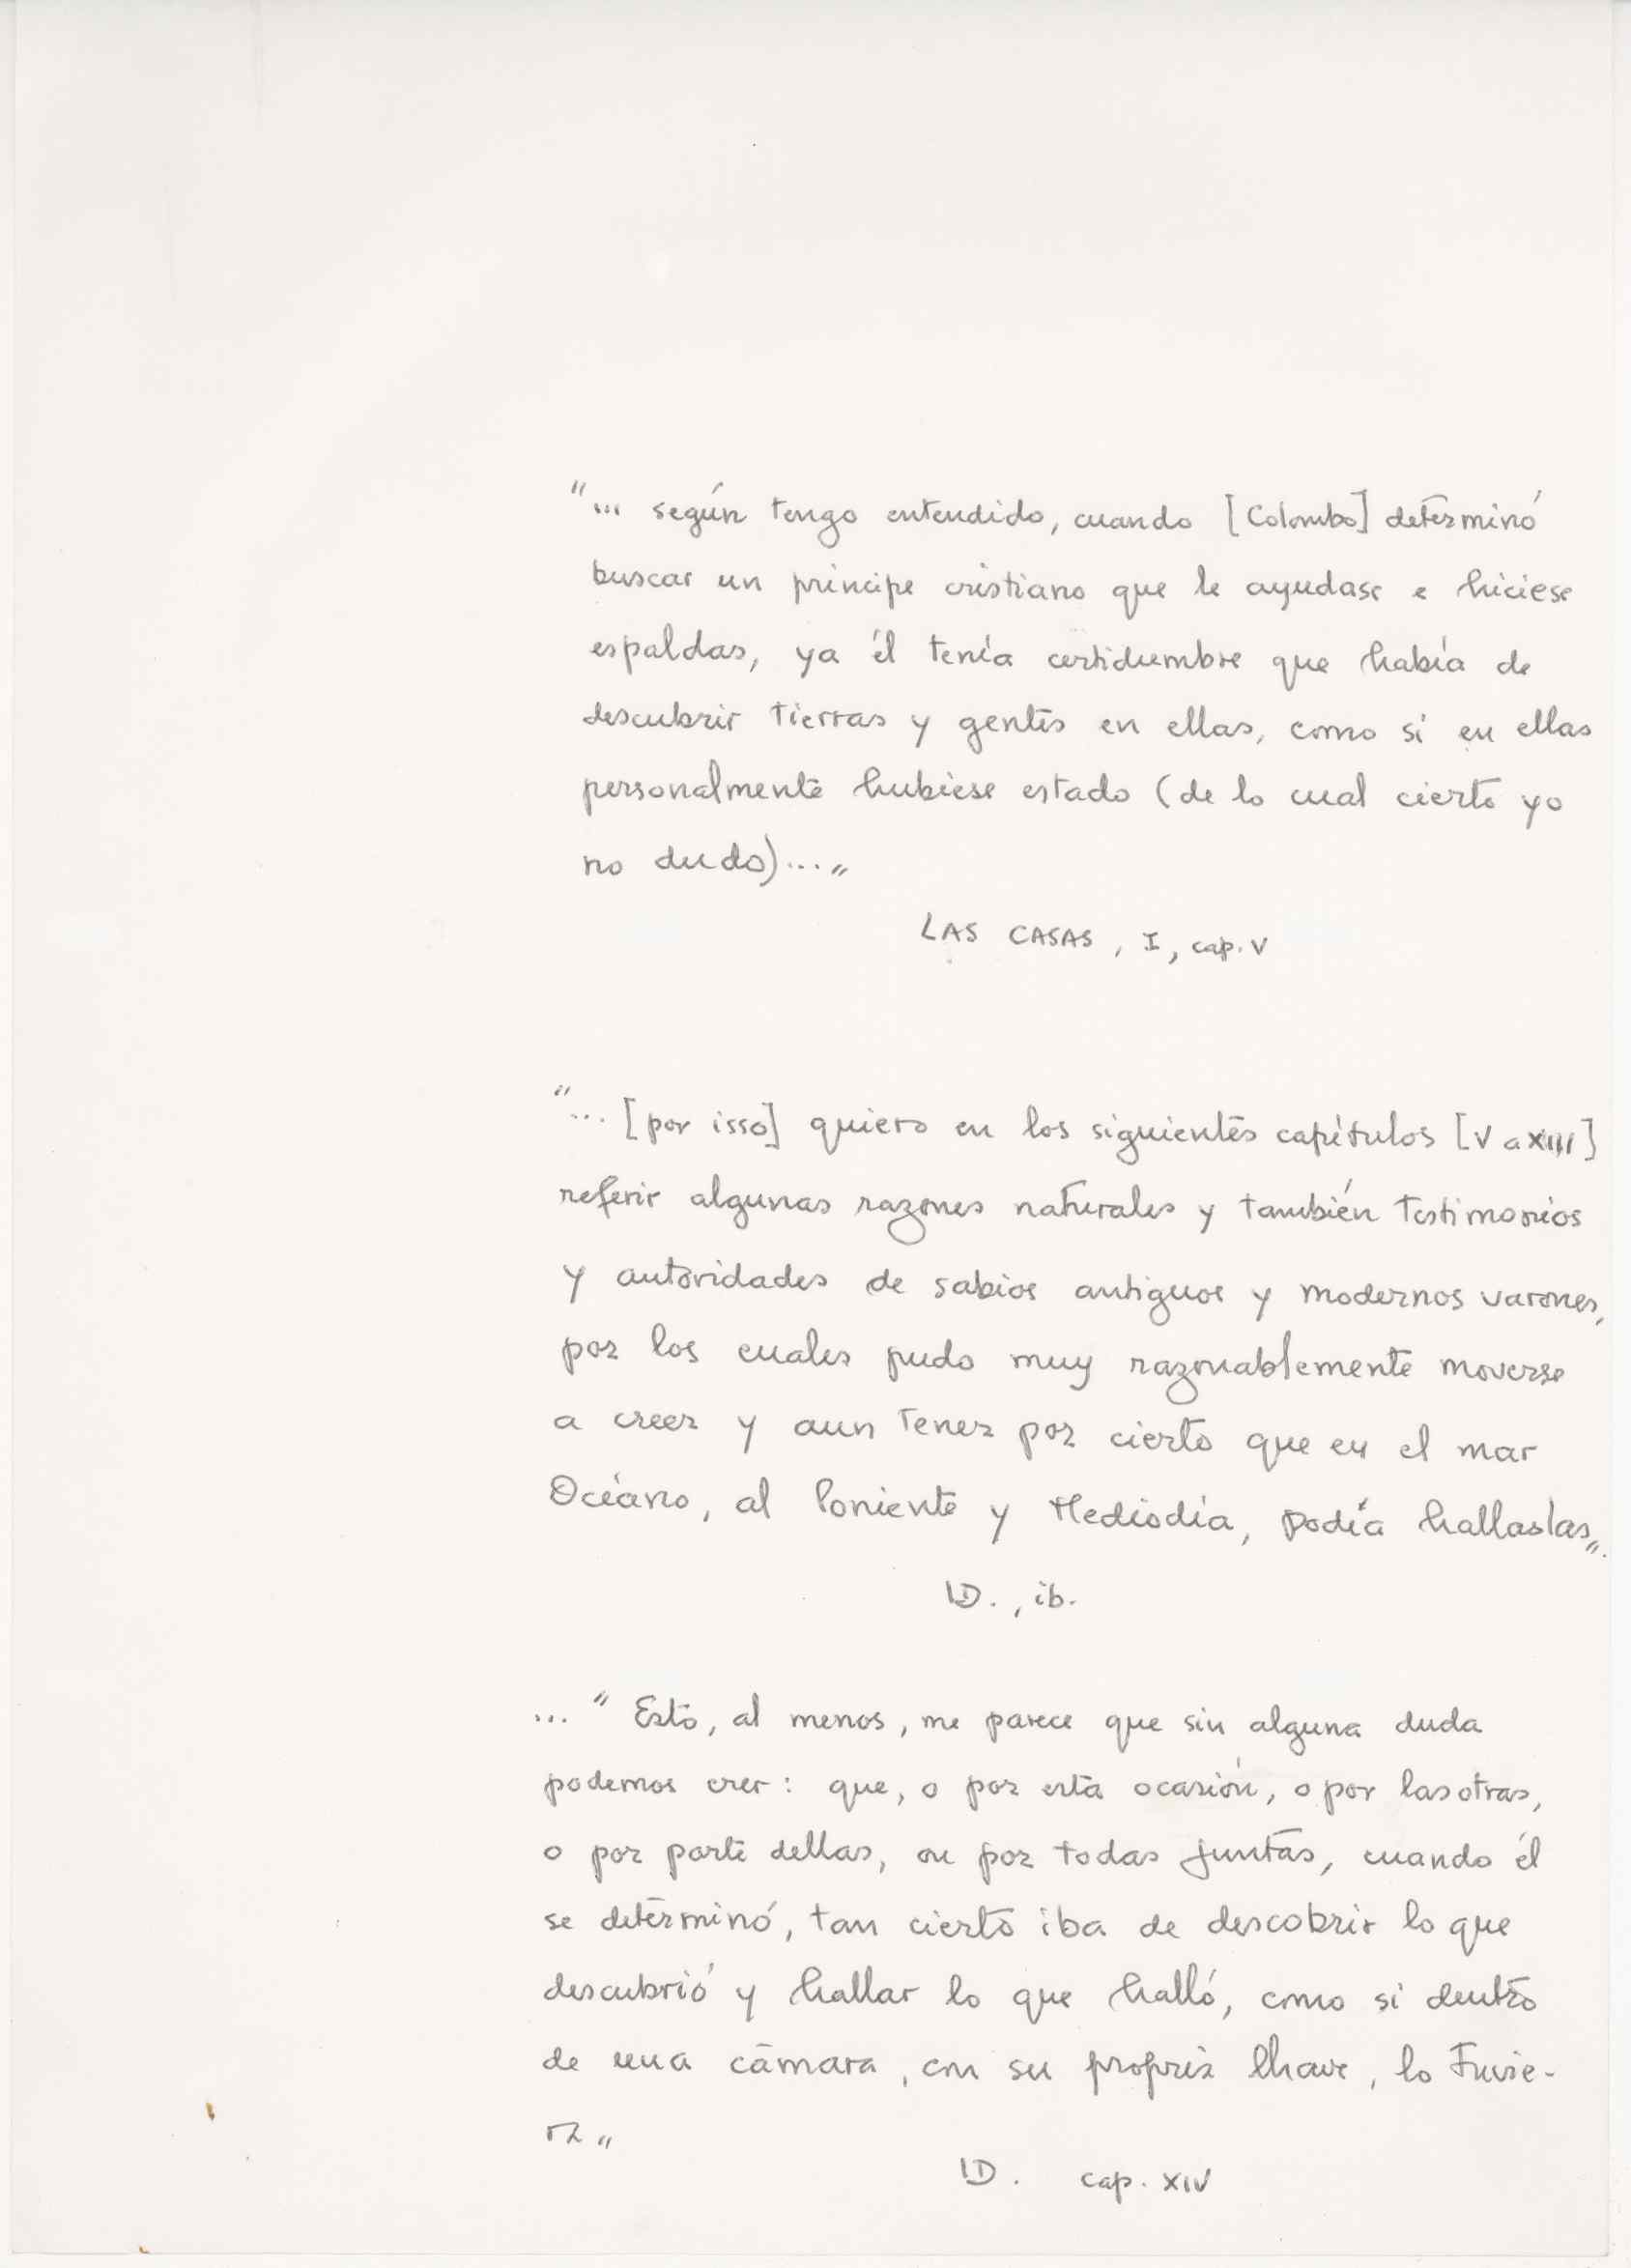 "... según tengo entendido, cuando [Colombo] determinó
buscar un príncipe cristiano que le ayudase e hiciese
espaldas, ya él tenía certidumbre que había de
descubrir tierras y gentes en ellas, como si en ellas
personalmente hubiese estado (de lo cual cierto yo
no dudo)..."
LAS CASAS, I, cap. V
"... [por isso] quiero en los siguientes capítulos [V a XIII]
referir algunas razones naturales y también testimonios
y autoridades de sabios antiguos y modernos varones,
por los cuales pudo muy razonablemente moverse
a creer y aun tener por cierto que en el mar
Océano, al Poniente y Mediodía, podía hallarlas".
ID., ib.
... "Esto, al menos, me parece que sin alguna duda
podemos crer: que, o por esta ocasión, o por las otras,
o por parte dellas, ou por todas juntas, cuando él
se determinó, tan cierto iba de descobrir lo que
descubrió y hallar lo que halló, como si dentro
de una câmara, con su propria lhave, lo tuvie-
ra"
ID. cap. XIV